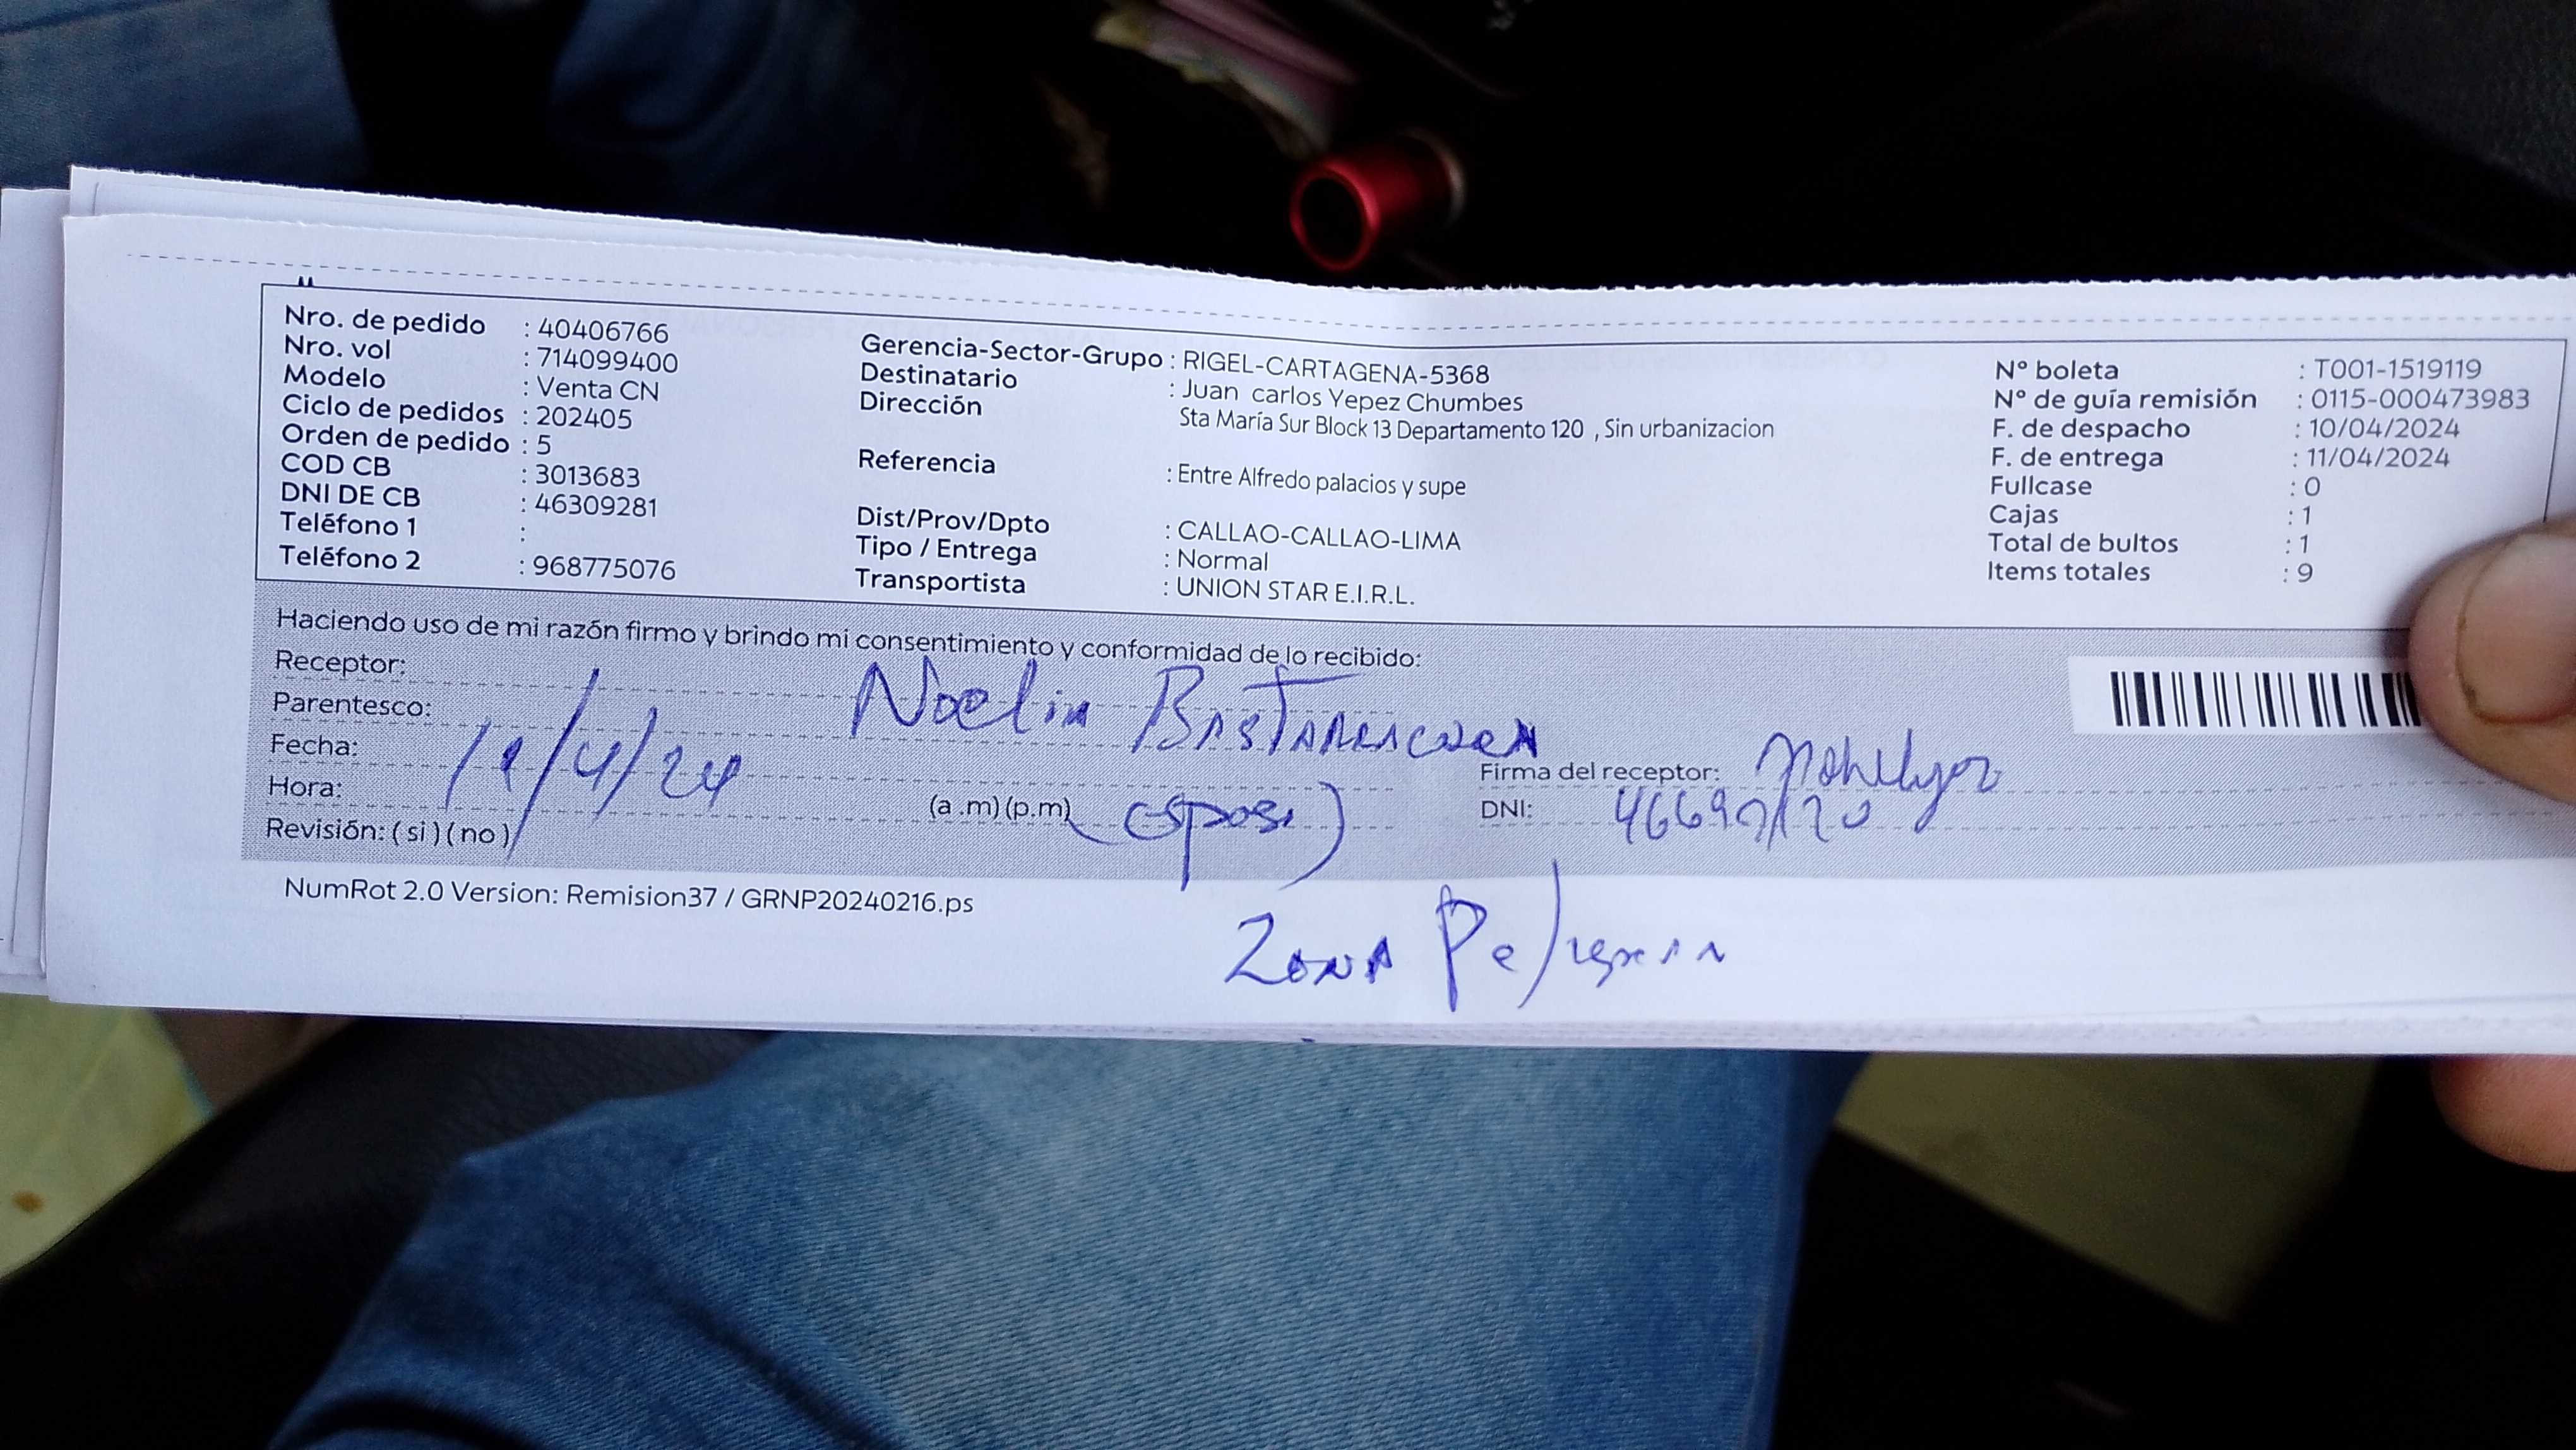 Nro. de pedido : 40406766
Nro. vol : 714099400
Modelo : Venta CN
Ciclo de pedidos : 202405
Orden de pedido : 5
COD CB : 3013683
DNI DE CB : 46309281
Teléfono 1 :
Teléfono 2 : 968775076
Gerencia-Sector-Grupo : RIGEL-CARTAGENA-5368
Destinatario : Juan carlos Yepez Chumbes
Dirección Sta María Sur Block 13 Departamento 120 , Sin urbanizacion
Referencia : Entre Alfredo palacios y supe
Dist/Prov/Dpto : CALLAO-CALLAO-LIMA
Tipo / Entrega : Normal
Transportista : UNION STAR E.I.R.L.
N° boleta : T001-1519119
N° de guía remisión : 0115-000473983
F. de despacho : 10/04/2024
F. de entrega : 11/04/2024
Fullcase : 0
Cajas : 1
Total de bultos : 1
Items totales : 9
Haciendo uso de mi razón firmo y brindo mi consentimiento y conformidad de lo recibido:
Receptor: Noelia
Parentesco:
Fecha: 11/4/24
Hora: (a .m)(p.m)
Revisión: ( si ) ( no )
(esposa)
Firma del receptor:
DNI:
NumRot 2.0 Version: Remision37 / GRNP20240216.ps
Zona Peligrosa